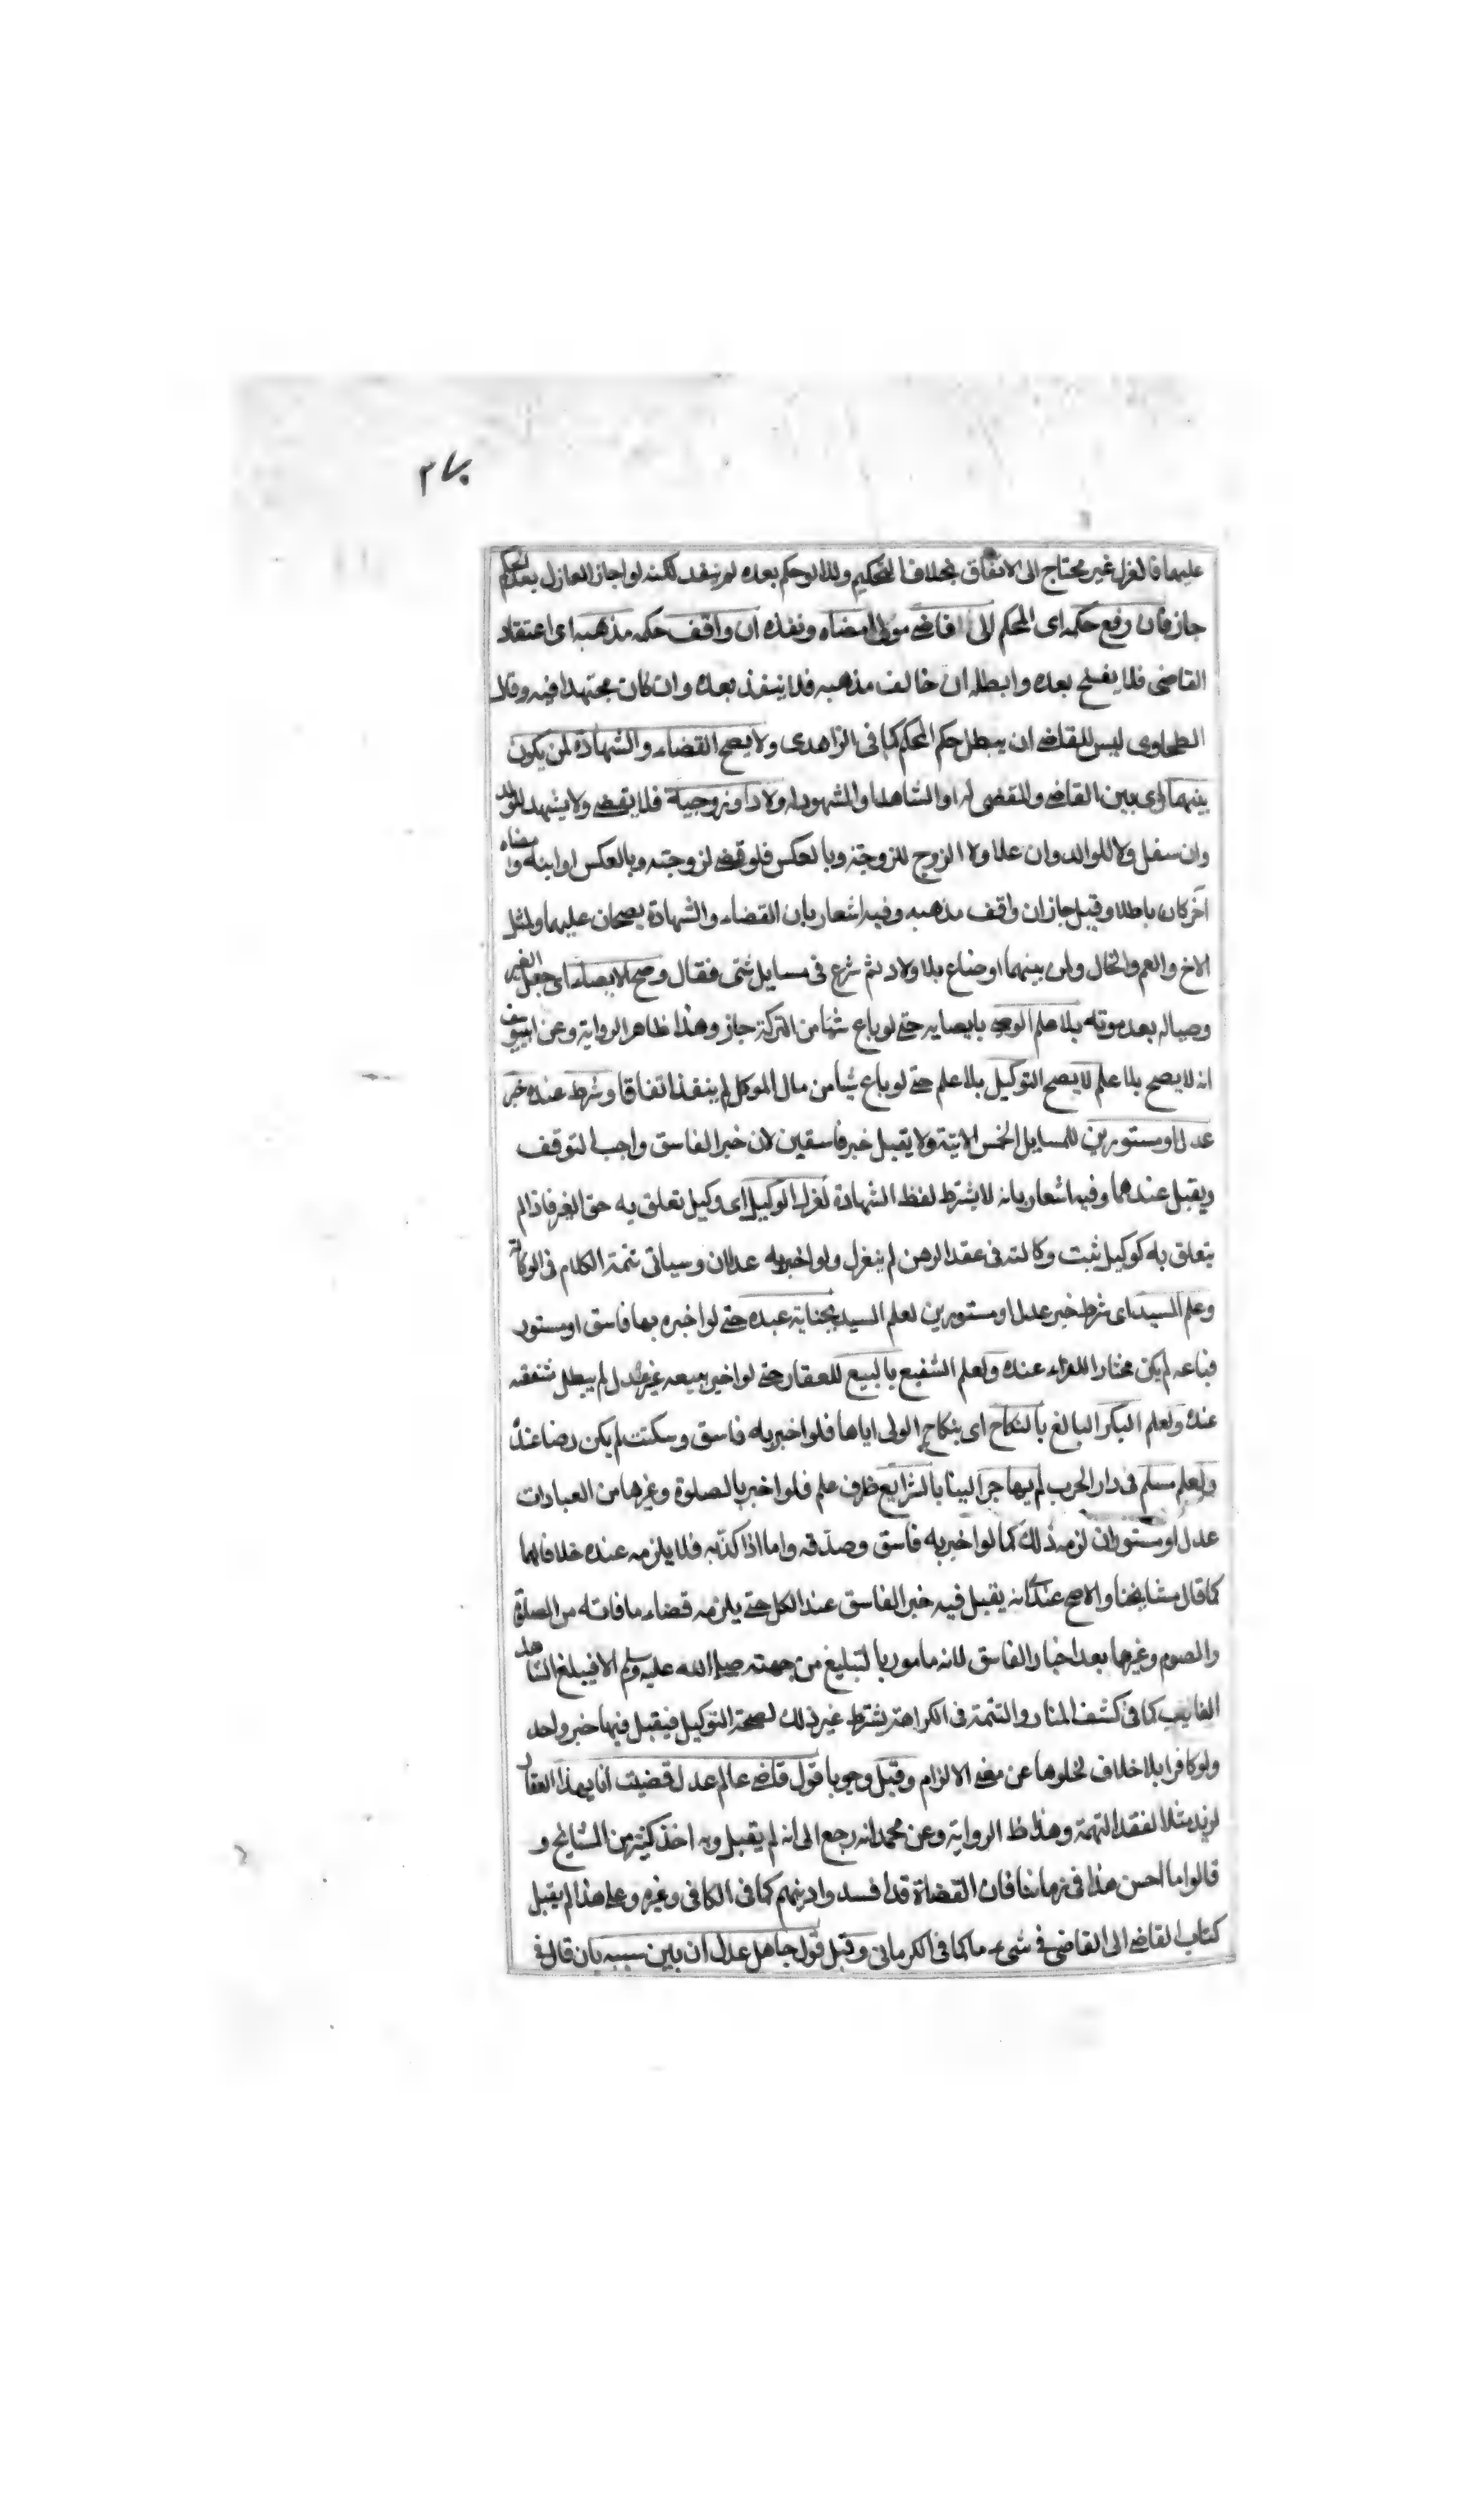 ٢٧٠
عليهما فالعزل غير محتاج الى الاتفاق بخلاف التحكيم ولذا لو حكم بعده لم ينفذ لكنه لو اجاز العازل بعد الحكم
جاز فان رفع حكمه اى المحكم الى قاضى مولى امضاه ونفذه ان وافق حكمه مذهبه اى اعتقاد
القاضى فلا يفسخ بعده وابطله ان خالف مذهبه فلا ينفذ بعده وان كان مجتهدا فيه وقال
الطحاوى ليس للقاضى ان يبطل حكم المحكم كما فى الزاهدى ولا يصح القضاء والشهادة لمن يكون
بينهما اى بين القاضى والمقضى له او الشاهد او المشهود له ولاد او زوجية فلا يقضى ولا يشهد للولد
وان سفل ولا للوالد وان علا ولا الزوج للزوجة وبالعكس فلو قضى لزوجته وبالعكس او ابنه وامضاه
آخر كان باطلا وقيل جاز ان وافق مذهبه وفيه اشعار بان القضاء والشهادة يصحان عليهما ولمثل
الاخ والعم والخال ولمن بينهما اوضاع بلا ولاد ثم شرع فى مسايل شتى فقال وصح الايصاء اى جعل الغير
وصيا له بعد موته بلا علم الوصى بايصايه حتى لو باع شيئا من التركة جاز وهذا ظاهر الرواية وعن ابى يوسف
انه لا يصح بلا علم لا يصح التوكيل بلا علم حتى لو باع شيا من مال الموكل لم ينفذ اتفاقا وشرط عنده خبر
عدل او مستورين للمسايل الخمس الاتية ولا يقبل خبر فاسقين لان خبر الفاسق واجب التوقف
ويقبل عندهما وفيه اشعار بانه لا يشترط لفظ الشهادة لعزل الوكيل اى وكيل تعلق به حق الغير فاذا لم
يتعلق به كوكيل ثبت وكالته فى عقد الرهن لم ينعزل ولو اخبر به عدلان وسياتى تتمة الكلام فى الوكالة
وعلم السيد اى شرط خبر عدل او مستورين لعلم السيد بجناية عبده حتى لو اخبره بها فاسق او مستور
فباعه لم يكن مختارا للفداء عنده ولعلم الشفيع بالبيع للعقار حتى لو اخبر ببيعه غير عدل لم يبطل شفعته
عنده ولعلم البكر البالغ بالنكاح اى بنكاح الولى اياها فلو اخبر به فاسق وسكتت لم يكن رضا عنده
ولعلم مسلم فى دار الحرب لم يهاجر الينا بالشرايع ظرف علم فلو اخبر بالصلوة وغيرها من العبادات
عدل او مستوران لزمه ذلك كما لو اخبر به فاسق وصدقه واما اذا كذبه فلا يلزمه عنده خلافا لهما
كما قال مشايخنا والاصح عندى انه يقبل فيه خبر الفاسق عند الكل حتى يلزمه قضاء ما فاته من الصلوة
والصوم وغيرها بعد اخبار الفاسق لانه مامور بالتبليغ من جهته صلى الله عليه وسلم الا فليبلغ الشاهد
الغايب كما فى كشف المنار والتتمة فى الكراهة يشترط غير ذلك لصحة التوكيل فيقبل فيها خبر واحد
ولو كافرا بلا خلاف لخلوها عن معنى الالزام وقبل وجوبا قول قاضى عالم عدل قضيت انا بهذا العقار
لزيد مثلا لفقد التهمة وهذا ظ الرواية وعن محمد انه رجع الى انه لم يقبل وبه اخذ كثير من المشايخ و
قالوا ما احسن هذا فى زماننا فان القضاة قد افسدوا دينهم كما فى الكافى وغيره وعلى هذا لم يقبل
كتاب القاضى الى القاضى فى شىء ما كما فى الكرمانى وقبل قول جاهل عدل ان بين سببه بان قال فى